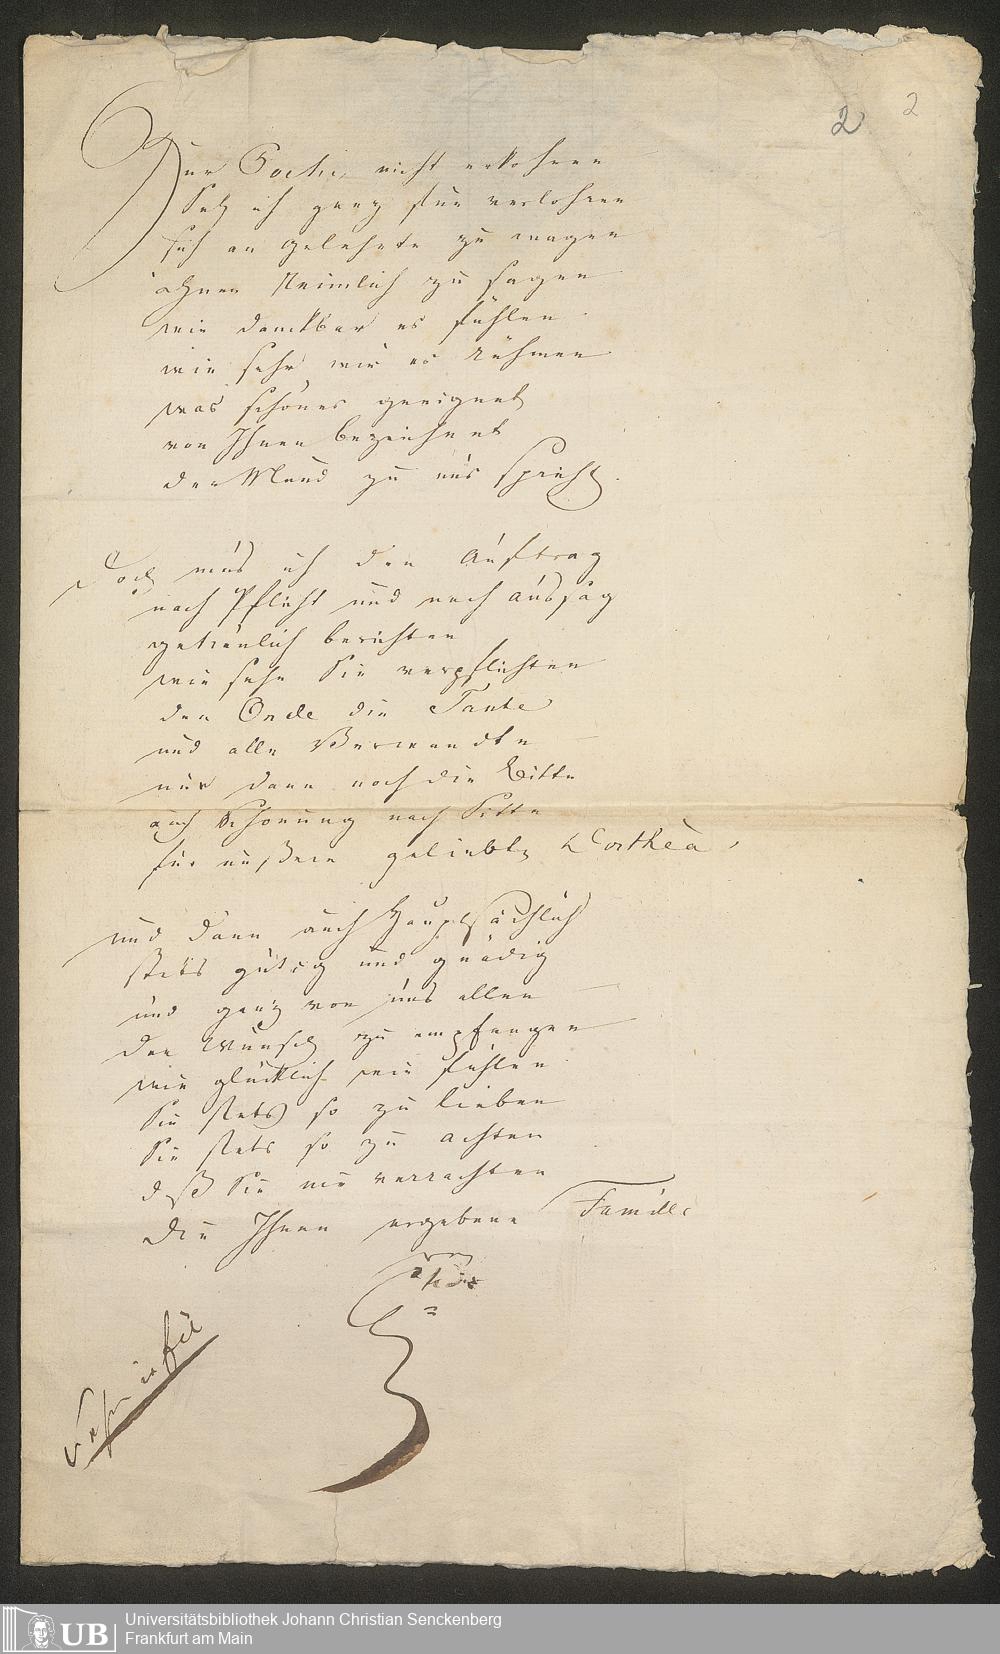 2 2
Zur Poesie, nicht erkohren
Seh ich ganz stur verlohren
sich an gelehrte zu wagen
Ihnen Reimlich zu sagen
wie danckbar es fühlen
wie sehr wir es rühmen
was schönes geeignet
von Ihnen bezeichnet
der Mund zu uns spricht.
Doch mus ich den Auftrag
nach Pflicht und nach Aussag
getreulich berichten
wie sehr Sie verpflichten
den Oncle die Tante
und alle Verwandte
nur dann noch die Bitte
auch Schonung nach Sitte
für unsere geliebte Dorthea,
und dann auch Hauptsächlich
stets gütig und gnädig
und ganz von uns allen
den Wunsch zu empfangen
wie glücklich wir fühlen
Sie stets so zu lieben
Sie stets so zu achten
daß Sie nie verachten
die Ihnen ergebene Familie
von
UB
Universitätsbibliothek Johann Christian Senckenberg
Frankfurt am Main